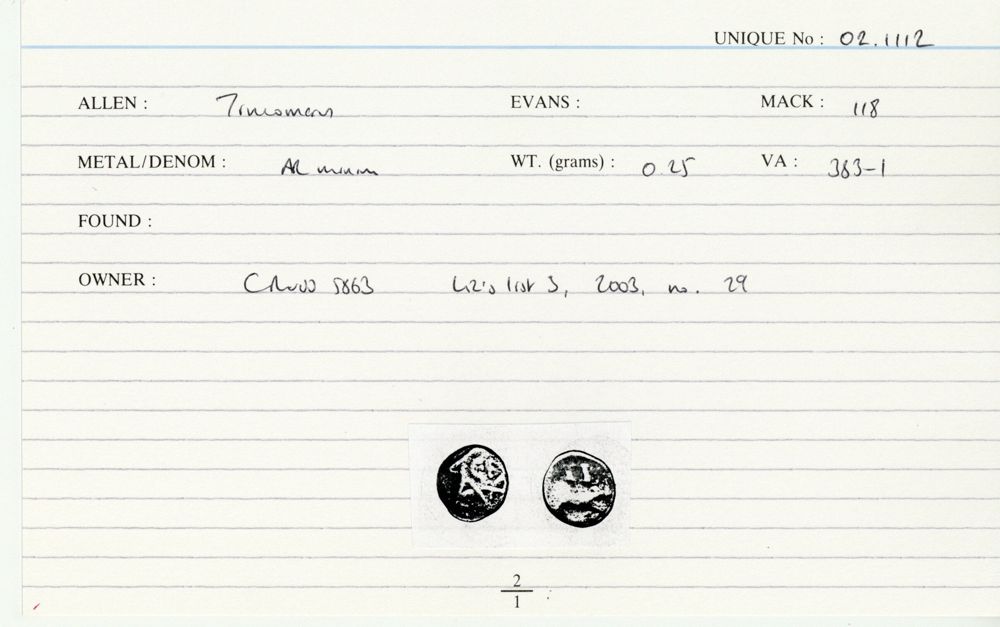 UNIQUE No : 02.1112
ALLEN : Tincomarus EVANS : MACK : 118
METAL/DENOM : AR minim WT. (grams) : 0.25 VA : 383-1
FOUND :
OWNER : CRUDD 5863 Liz's list 3, 2003, no. 29
2
1